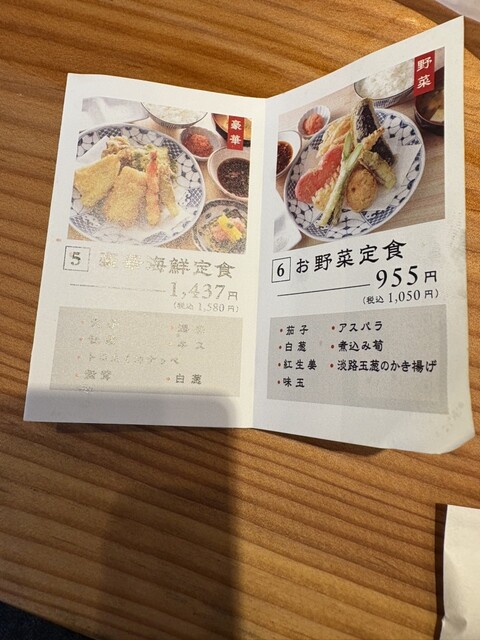 豪華
5 豪華海鮮定食
1,437円
(税込 1,580円)
・白葱
野菜
6 お野菜定食
955円
(税込 1,050円)
・茄子 ・アスパラ
・白葱 ・煮込み筍
・紅生姜 ・淡路玉葱のかき揚げ
・味玉